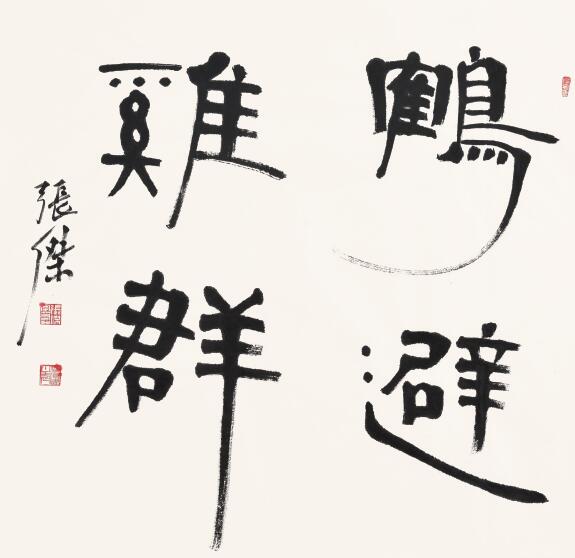 鶴避
雞群
張傑